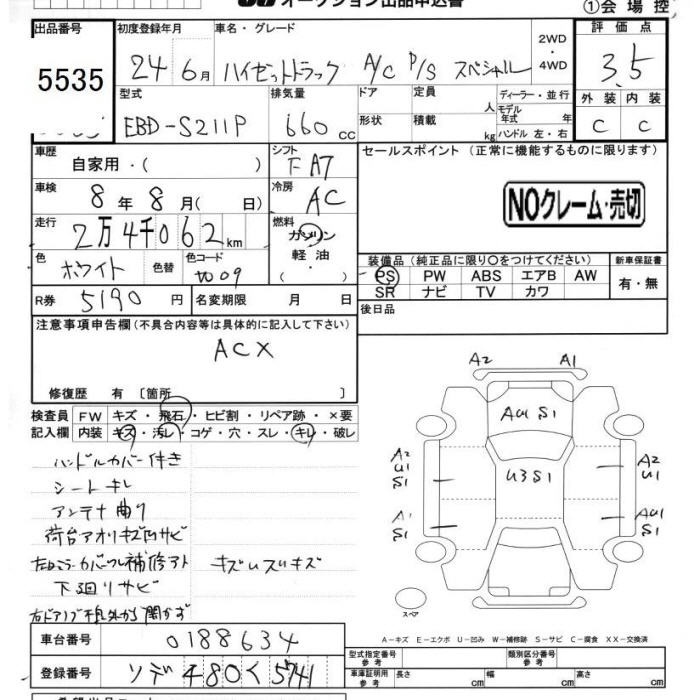 オークション出品申込書
①会場控
出品番号 初度登録年月 車名・グレード 2WD・4WD 評価点
5535 24年6月 ハイゼットトラック A/C P/S スペシャル 3.5
型式 排気量 ドア 定員 人 ディーラー・並行 外装 内装
EBD-S211P 660cc 形状 積載 kg モデル年式 年 ハンドル 左・右 C C
車歴 自家用・( ) シフト FA7 セールスポイント (正常に機能するものに限ります)
車検 8年8月( 日) 冷房 AC NOクレーム・売切
走行 2万4千062km 燃料 ガソリン・軽油・
色 ホワイト 色替 色コード W09
装備品 (純正品に限り○をつけてください) 新車保証書
PS PW ABS エアB AW 有・無
SR ナビ TV カワ
R券 5190円 名変期限 月 日 後日品
注意事項申告欄 (不具合内容等は具体的に記入して下さい)
ACX
修復歴 有 [箇所 ]
検査員記入欄 FW キズ・飛石・ヒビ割・リペア跡・×要
内装 キズ・汚レ・コゲ・穴・スレ・キレ・破レ
ハンドルカバー付き
シートキレ
アンテナ曲り
荷台アオリキズ凹サビ
補修アト キズ
下廻りサビ
外から開かず
A2 A1
AU S1
A2 U1 S1 U3 S1 A2 U1
A1 S1 AU1 S1
スペア
A-キズ E-エクボ U-凹み W-補修跡 S-サビ C-腐食 XX-交換済
車台番号 0188634
型式指定番号 参考 類別区分番号 参考
登録番号 ソデ480く5741
車庫証明用 参考 長さ cm 幅 cm 高さ cm